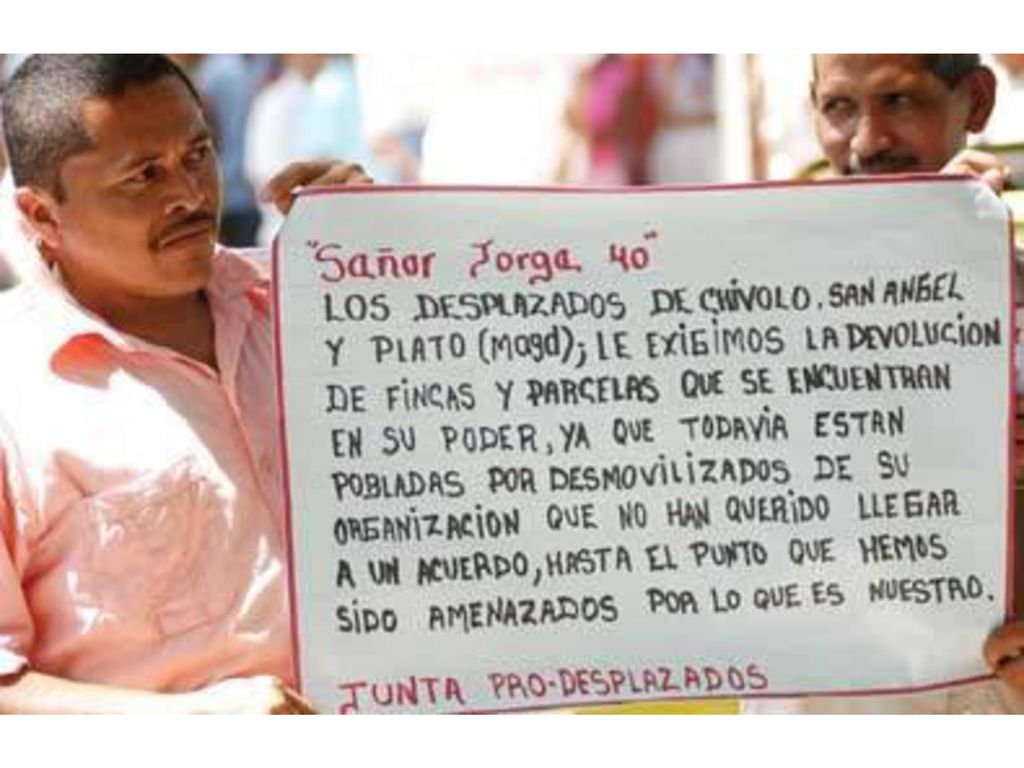 "Sañor Jorga 40"
LOS DESPLAZADOS DE CHIVOLO. SAN ANGEL
Y PLATO (Magd); LE EXIGIMOS LA DEVOLUCION
DE FINCAS Y PARCELAS QUE SE ENCUENTRAN
EN SU PODER, YA QUE TODAVIA ESTAN
POBLADAS POR DESMOVILIZADOS DE SU
ORGANIZACION QUE NO HAN QUERIDO LLEGAR
A UN ACUERDO, HASTA EL PUNTO QUE HEMOS
SIDO AMENAZADOS POR LO QUE ES NUESTRO.
JUNTA PRO-DESPLAZADOS